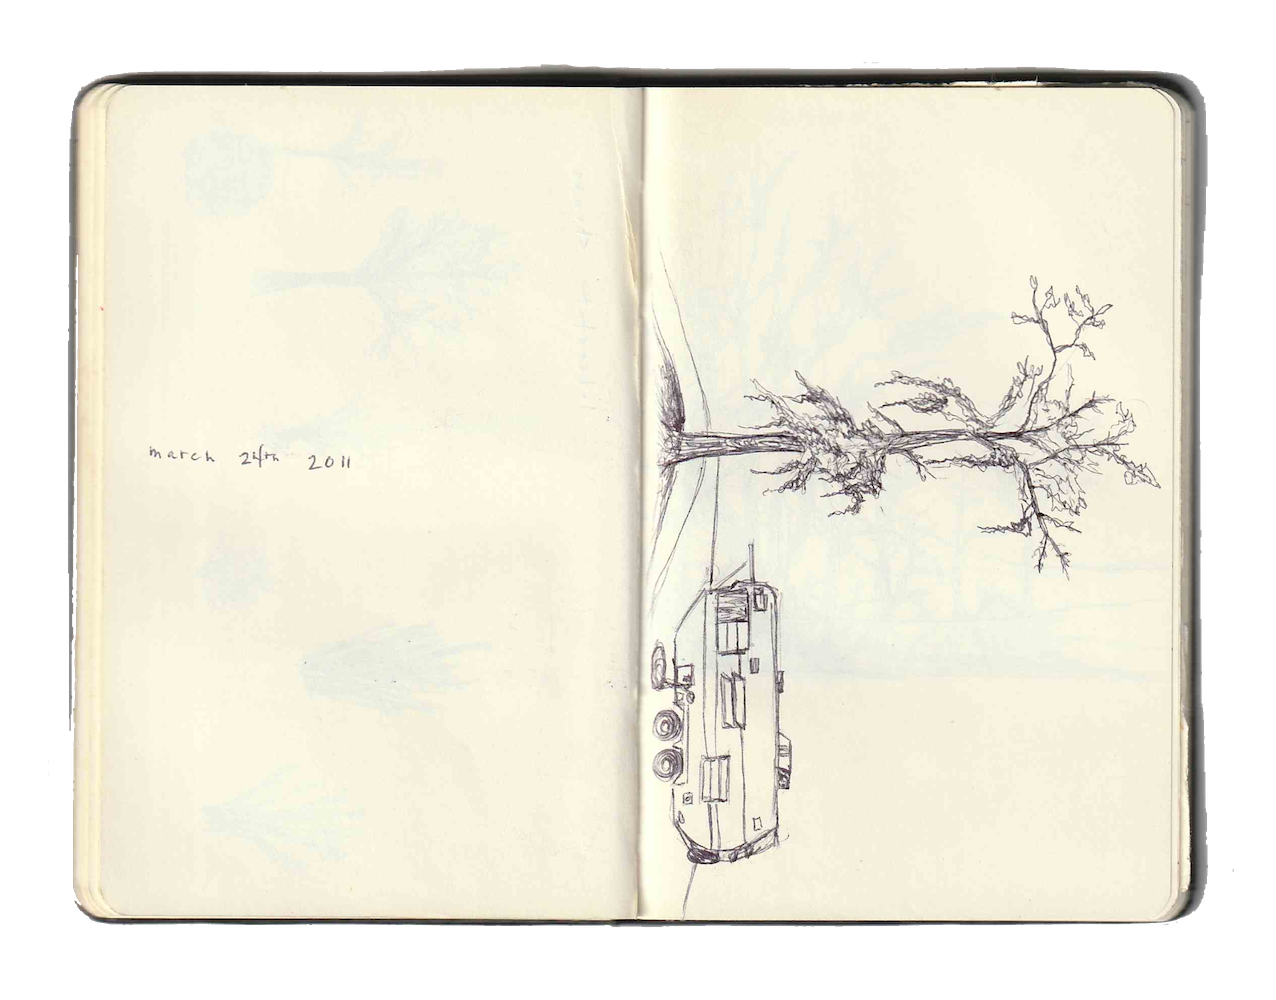 march 24th 2011